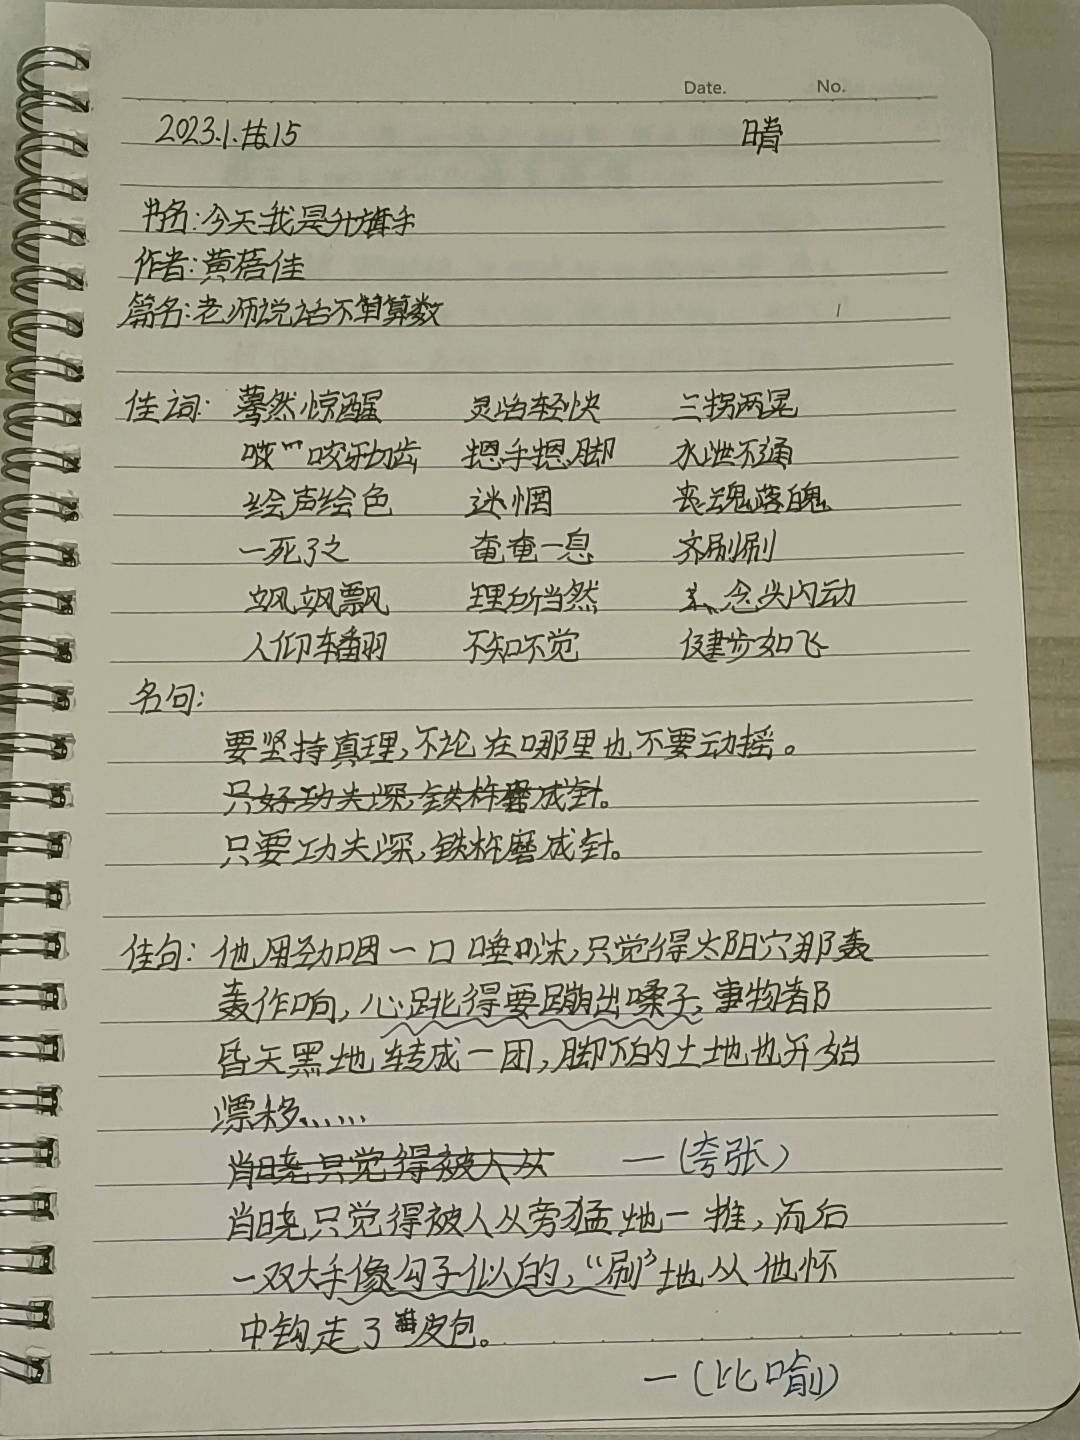 Date. No.
2023.1.15 晴
书名:今天我是升旗手
作者:黄蓓佳
篇名:老师说话不算数
佳词: 蓦然惊醒 灵巧轻快 三拐两晃
咬牙切齿 摁手摁脚 水泄不通
绘声绘色 迷惘 丧魂落魄
一死了之 奄奄一息 齐刷刷
飒飒飘 理所当然 念头闪动
人仰翻 不知不觉 健步如飞
名句:
要坚持真理,不论在哪里也不要动摇。
只好功夫深,铁杵磨成针。
只要功夫深,铁杵磨成针。
佳句: 他用劲咽一口唾味,只觉得太阳穴那轰
轰作响,心跳得要蹦出嗓子,事物都
昏天黑地转成一团,脚下的土地也开始
漂移……
肖晓只觉得被人从 一(夸张)
肖晓只觉得被人从旁猛地一推,而后
一双大手像勾子似的,“刷”地从他怀
中钩走了皮包。
一(比喻)